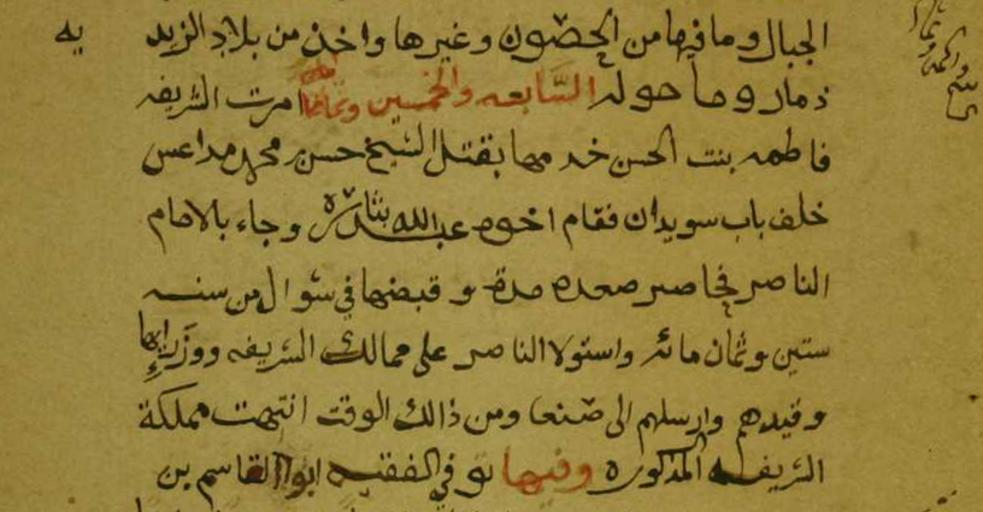 الجبال وما فيها من الحصون وغيرها واخذ من بلاد الزيديه
ذمار وما حوله السابعه والخمسين وثمانمائة امرت الشريفه
فاطمه بنت الحسن خدمها بقتل الشيخ حسن بن محمد مداعس
خلف باب سويدان فقام اخوه عبدالله بثاره وجاء بالامام
الناصر فحاصر صعده مدة وقبضها في شوال من سنه
ستين وثمان مائه واستولا الناصر على ممالك الشريفه ووزرايها
وقيدهم وارسلهم الى صنعا ومن ذالك الوقت انتهت مملكة
الشريفه المذكوره وفيها توفي الفقيه ابوا القاسم بن